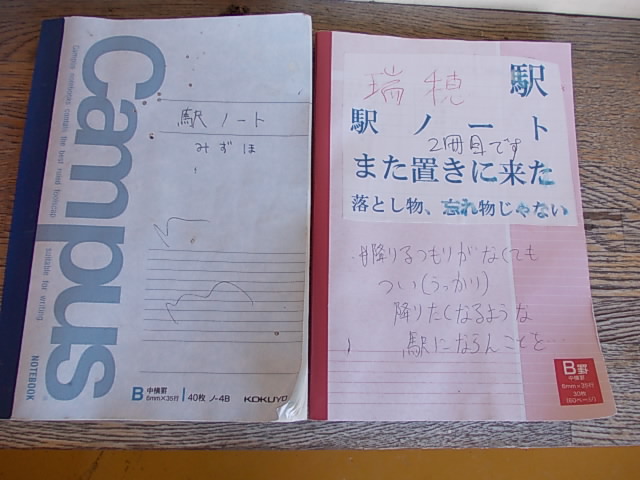 Campus
Campus notebooks contain the best ruled foolscap
suitable for writing
NOTEBOOK
駅ノート
みずほ
B 中横罫
6mm×35行
40枚 ノ-4B
KOKUYO
瑞穂 駅
駅ノート
2冊目です
また置きに来た
落とし物、忘れ物じゃない
降りるつもりがなくても
つい(うっかり)
降りたくなるような
駅にならんことを…
B罫
中横罫
6mm×35行
30枚
(60ページ)